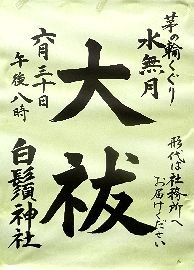 茅の輪くぐり
水無月
大祓
形代は社務所へ
お届けください
六月三十日
午後八時
白鬚神社